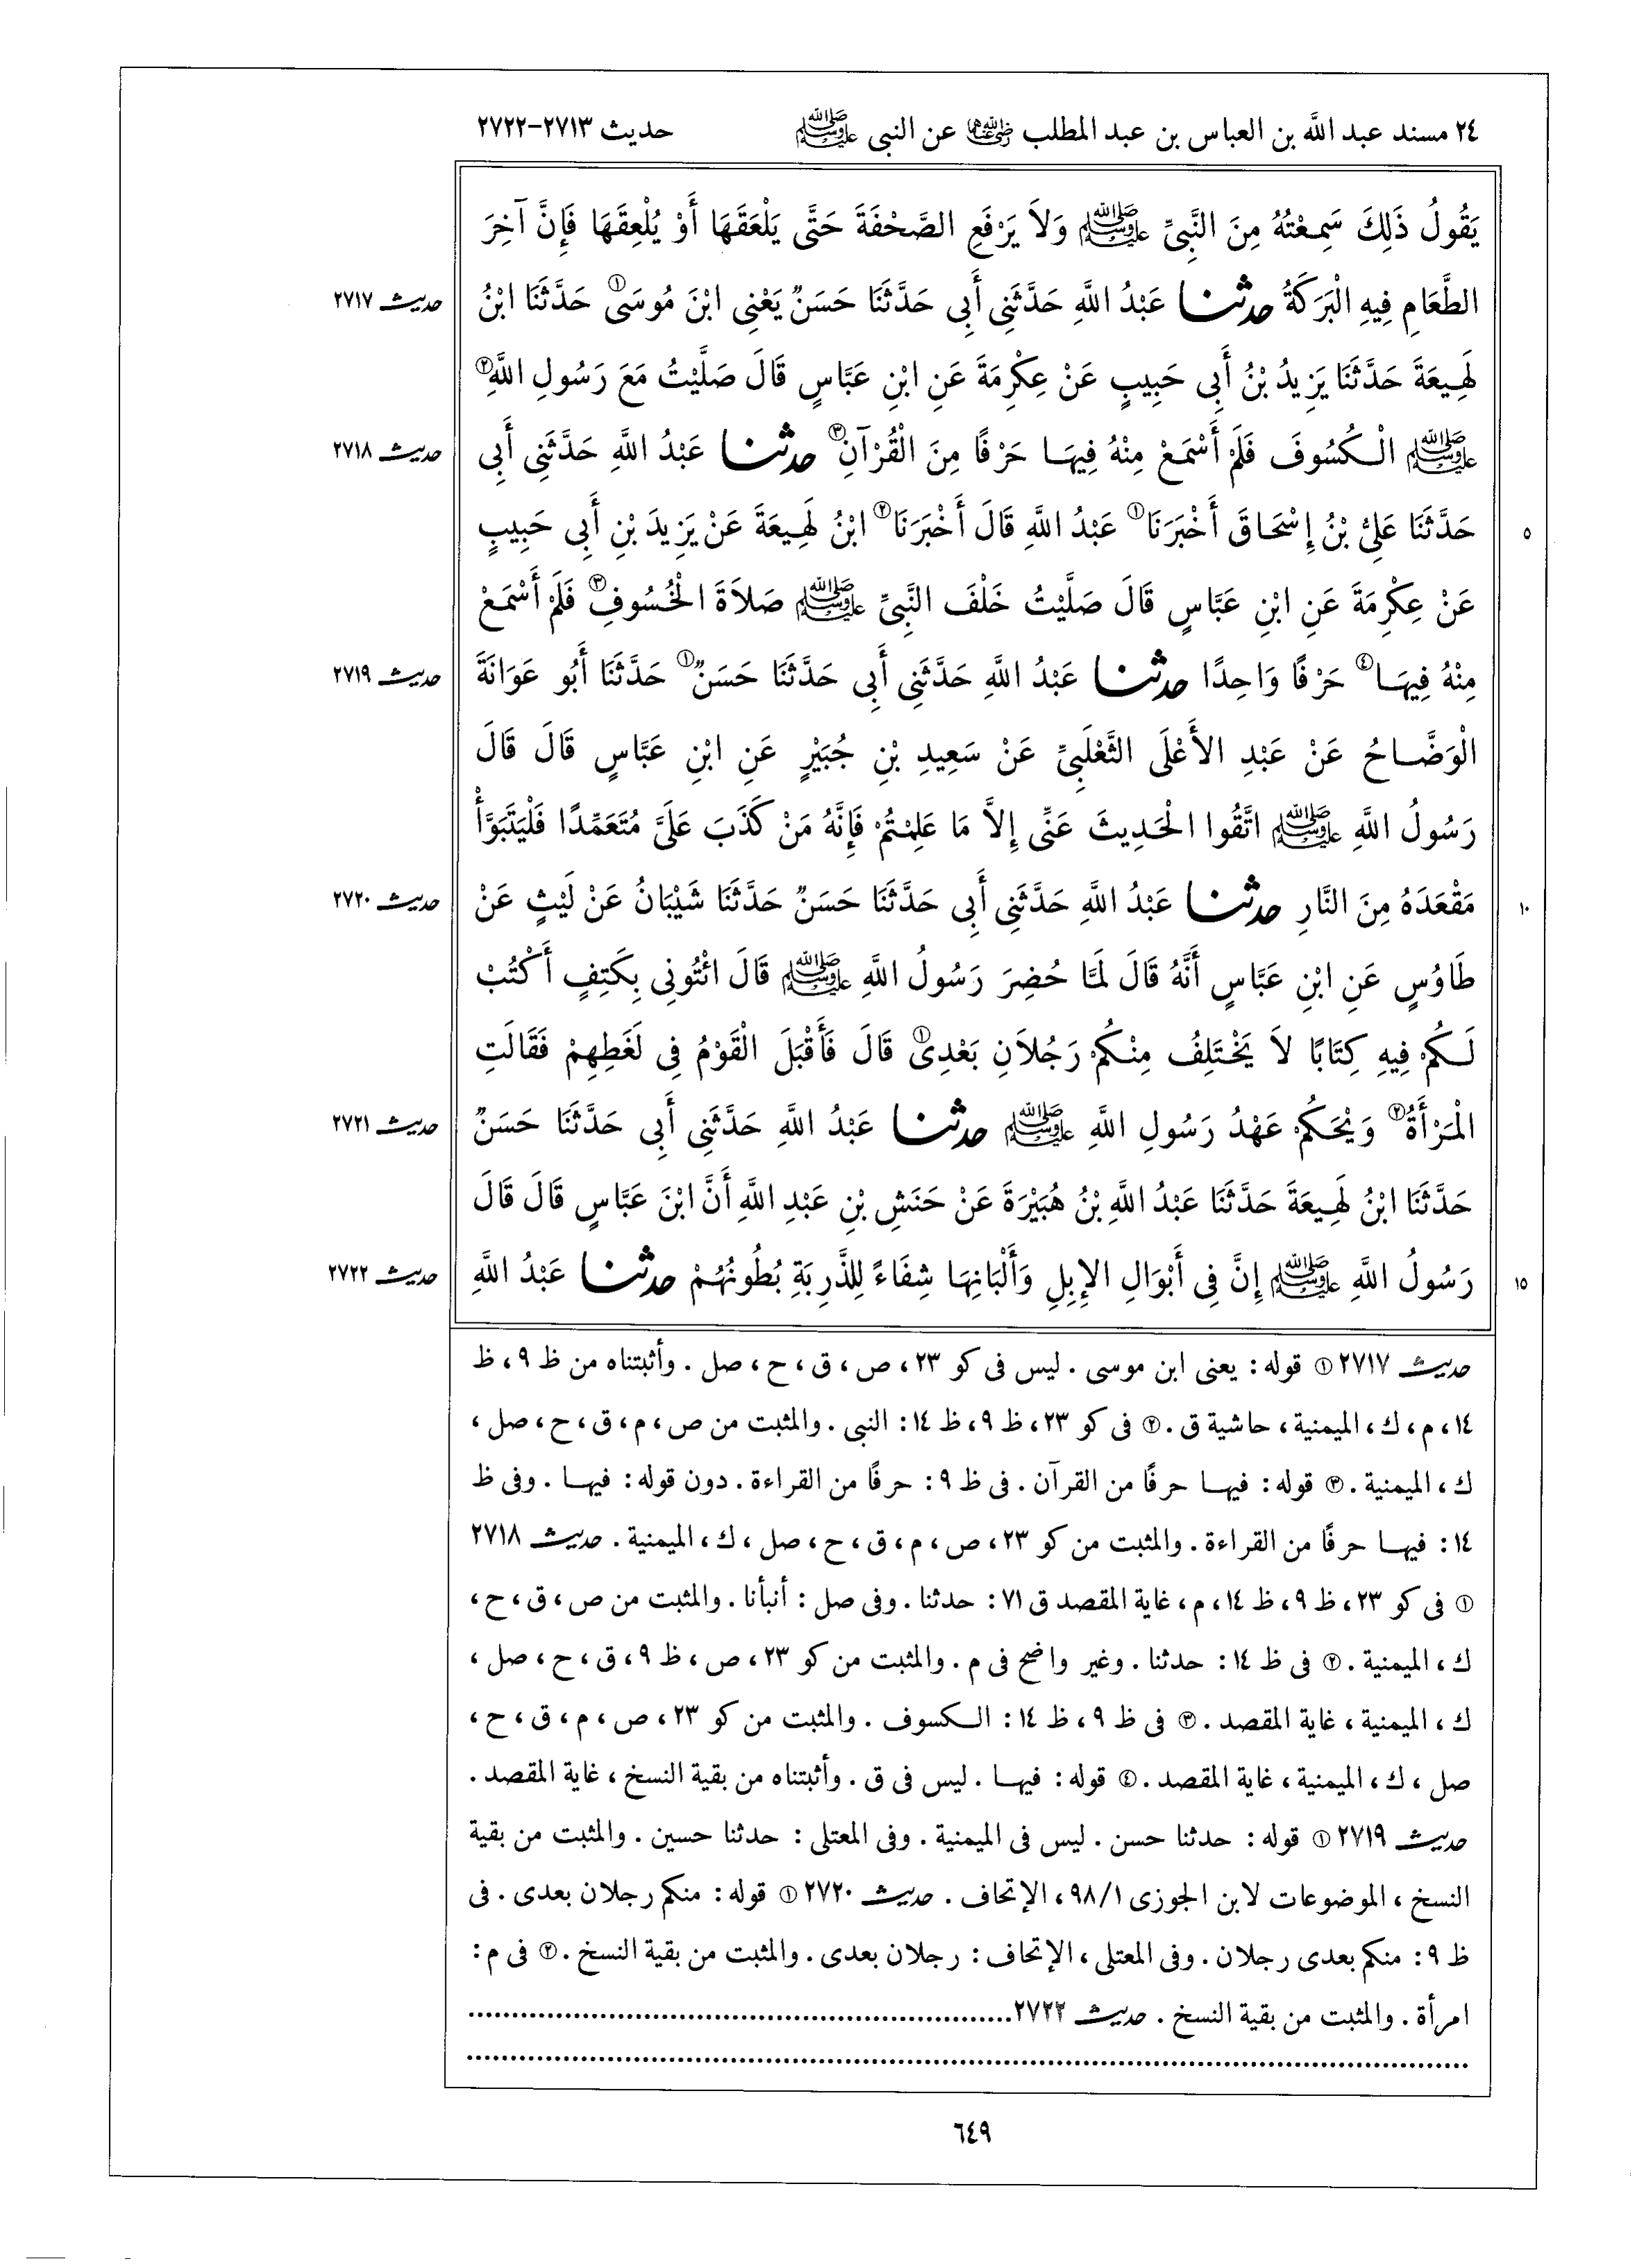 ٢٤ مسند عبد الله بن العباس بن عبد المطلب رضي الله عنهما عن النبى ﷺ حديث ٢٧١٣-٢٧٢٢
يَقُولُ ذَلِكَ سَمِعْتُهُ مِنَ النَّبِىِّ ﷺ وَلاَ يَرْفَعِ الصَّحْفَةَ حَتَّى يَلْعَقَهَا أَوْ يُلْعِقَهَا فَإِنَّ آخِرَ
الطَّعَامِ فِيهِ الْبَرَكَةُ حدثنا عَبْدُ اللَّهِ حَدَّثَنِى أَبِى حَدَّثَنَا حَسَنٌ يَعْنِى ابْنَ مُوسَى① حَدَّثَنَا ابْنُ حديث ٢٧١٧
لَهِيعَةَ حَدَّثَنَا يَزِيدُ بْنُ أَبِى حَبِيبٍ عَنْ عِكْرِمَةَ عَنِ ابْنِ عَبَّاسٍ قَالَ صَلَّيْتُ مَعَ رَسُولِ اللَّهِ②
ﷺ الْكُسُوفَ فَلَمْ أَسْمَعْ مِنْهُ فِيهَا حَرْفًا مِنَ الْقُرْآنِ③ حدثنا عَبْدُ اللَّهِ حَدَّثَنِى أَبِى حديث ٢٧١٨
حَدَّثَنَا عَلِىُّ بْنُ إِسْحَاقَ أَخْبَرَنَا① عَبْدُ اللَّهِ قَالَ أَخْبَرَنَا② ابْنُ لَهِيعَةَ عَنْ يَزِيدَ بْنِ أَبِى حَبِيبٍ ٥
عَنْ عِكْرِمَةَ عَنِ ابْنِ عَبَّاسٍ قَالَ صَلَّيْتُ خَلْفَ النَّبِىِّ ﷺ صَلاَةَ الْخُسُوفِ③ فَلَمْ أَسْمَعْ
مِنْهُ فِيهَا④ حَرْفًا وَاحِدًا حدثنا عَبْدُ اللَّهِ حَدَّثَنِى أَبِى حَدَّثَنَا حَسَنٌ① حَدَّثَنَا أَبُو عَوَانَةَ حديث ٢٧١٩
الْوَضَّاحُ عَنْ عَبْدِ الأَعْلَى الثَّعْلَبِىِّ عَنْ سَعِيدِ بْنِ جُبَيْرٍ عَنِ ابْنِ عَبَّاسٍ قَالَ قَالَ
رَسُولُ اللَّهِ ﷺ اتَّقُوا الْحَدِيثَ عَنِّى إِلاَّ مَا عَلِمْتُمْ فَإِنَّهُ مَنْ كَذَبَ عَلَىَّ مُتَعَمِّدًا فَلْيَتَبَوَّأْ
مَقْعَدَهُ مِنَ النَّارِ حدثنا عَبْدُ اللَّهِ حَدَّثَنِى أَبِى حَدَّثَنَا حَسَنٌ حَدَّثَنَا شَيْبَانُ عَنْ لَيْثٍ عَنْ حديث ٢٧٢٠ ١٠
طَاوُسٍ عَنِ ابْنِ عَبَّاسٍ أَنَّهُ قَالَ لَمَّا حُضِرَ رَسُولُ اللَّهِ ﷺ قَالَ ائْتُونِى بِكَتِفٍ أَكْتُبْ
لَكُمْ فِيهِ كِتَابًا لاَ يَخْتَلِفُ مِنْكُمْ رَجُلاَنِ بَعْدِى① قَالَ فَأَقْبَلَ الْقَوْمُ فِى لَغَطِهِمْ فَقَالَتِ
الْمَرْأَةُ② وَيْحَكُمْ عَهْدُ رَسُولِ اللَّهِ ﷺ حدثنا عَبْدُ اللَّهِ حَدَّثَنِى أَبِى حَدَّثَنَا حَسَنٌ حديث ٢٧٢١
حَدَّثَنَا ابْنُ لَهِيعَةَ حَدَّثَنَا عَبْدُ اللَّهِ بْنُ هُبَيْرَةَ عَنْ حَنَشِ بْنِ عَبْدِ اللَّهِ أَنَّ ابْنَ عَبَّاسٍ قَالَ قَالَ
رَسُولُ اللَّهِ ﷺ إِنَّ فِى أَبْوَالِ الإِبِلِ وَأَلْبَانِهَا شِفَاءً لِلذَّرِبَةِ بُطُونُهُمْ حدثنا عَبْدُ اللَّهِ حديث ٢٧٢٢ ١٥
حديث ٢٧١٧ ① قوله : يعنى ابن موسى . ليس فى كو ٢٣، ص ، ق ، ح ، صل . وأثبتناه من ظ ٩، ظ
١٤، م ، ك ، الميمنية ، حاشية ق . ② فى كو ٢٣، ظ ٩، ظ ١٤: النبى . والمثبت من ص ، م ، ق ، ح ، صل ،
ك ، الميمنية . ③ قوله : فيها حرفًا من القرآن . فى ظ ٩: حرفًا من القراءة . دون قوله : فيها . وفى ظ
١٤: فيها حرفًا من القراءة . والمثبت من كو ٢٣، ص ، م ، ق ، ح ، صل ، ك ، الميمنية . حديث ٢٧١٨
① فى كو ٢٣، ظ ٩، ظ ١٤، م ، غاية المقصد ق ٧١: حدثنا . وفى صل : أنبأنا . والمثبت من ص ، ق ، ح ،
ك ، الميمنية . ② فى ظ ١٤: حدثنا . وغير واضح فى م . والمثبت من كو ٢٣، ص ، ظ ٩، ق ، ح ، صل ،
ك ، الميمنية ، غاية المقصد . ③ فى ظ ٩، ظ ١٤: الكسوف . والمثبت من كو ٢٣، ص ، م ، ق ، ح ،
صل ، ك ، الميمنية ، غاية المقصد . ④ قوله : فيها . ليس فى ق . وأثبتناه من بقية النسخ ، غاية المقصد .
حديث ٢٧١٩ ① قوله : حدثنا حسن . ليس فى الميمنية . وفى المعتلى : حدثنا حسين . والمثبت من بقية
النسخ ، الموضوعات لابن الجوزى ٩٨/١، الإتحاف . حديث ٢٧٢٠ ① قوله : منكم رجلان بعدى . فى
ظ ٩: منكم بعدى رجلان . وفى المعتلى ، الإتحاف : رجلان بعدى . والمثبت من بقية النسخ . ② فى م :
امرأة . والمثبت من بقية النسخ . حديث ٢٧٢٢..............................
..............................
٦٤٩